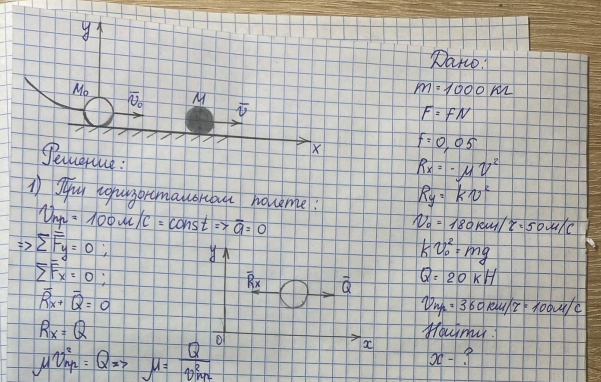 y
M₀
V̄₀
M
V̄
x
Решение:
1) При горизонтальном полете:
Vпр = 100м/с = const => ā = 0
=> ΣF̄y = 0 ;
ΣF̄x = 0 ;
R̄x + Q̄ = 0
Rx = Q
μV²пр = Q => μ = Q/V²пр
y
R̄x
Q̄
0
x
Дано:
m = 1000 кг
F = fN
f = 0,05
Rx = -μV²
Ry = kV²
V₀ = 180 км/ч = 50 м/с
kV₀² = mg
Q = 20 кН
Vпр = 360 км/ч = 100м/с
Найти:
x - ?